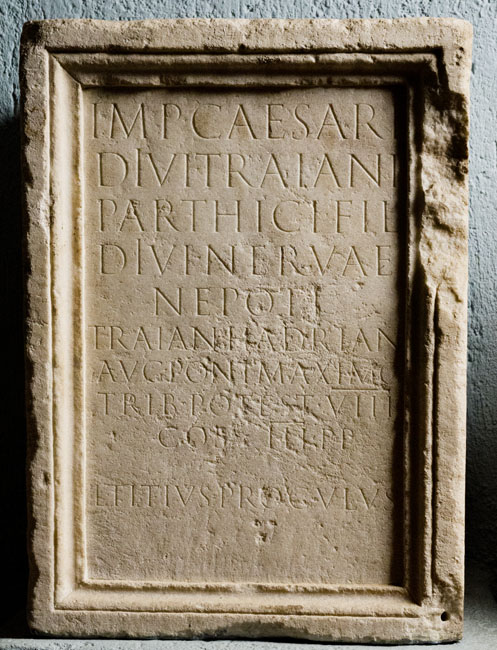 IMP CAESAR
DIVI TRAIANI
PARTHICI FIL
DIVI NERVAE
NEPOTI
TRAIAN HADRIAN
AVG PONT MAXIMO
TRIB POTEST VIII
COS III PP
L TITIVS PROCVLVS